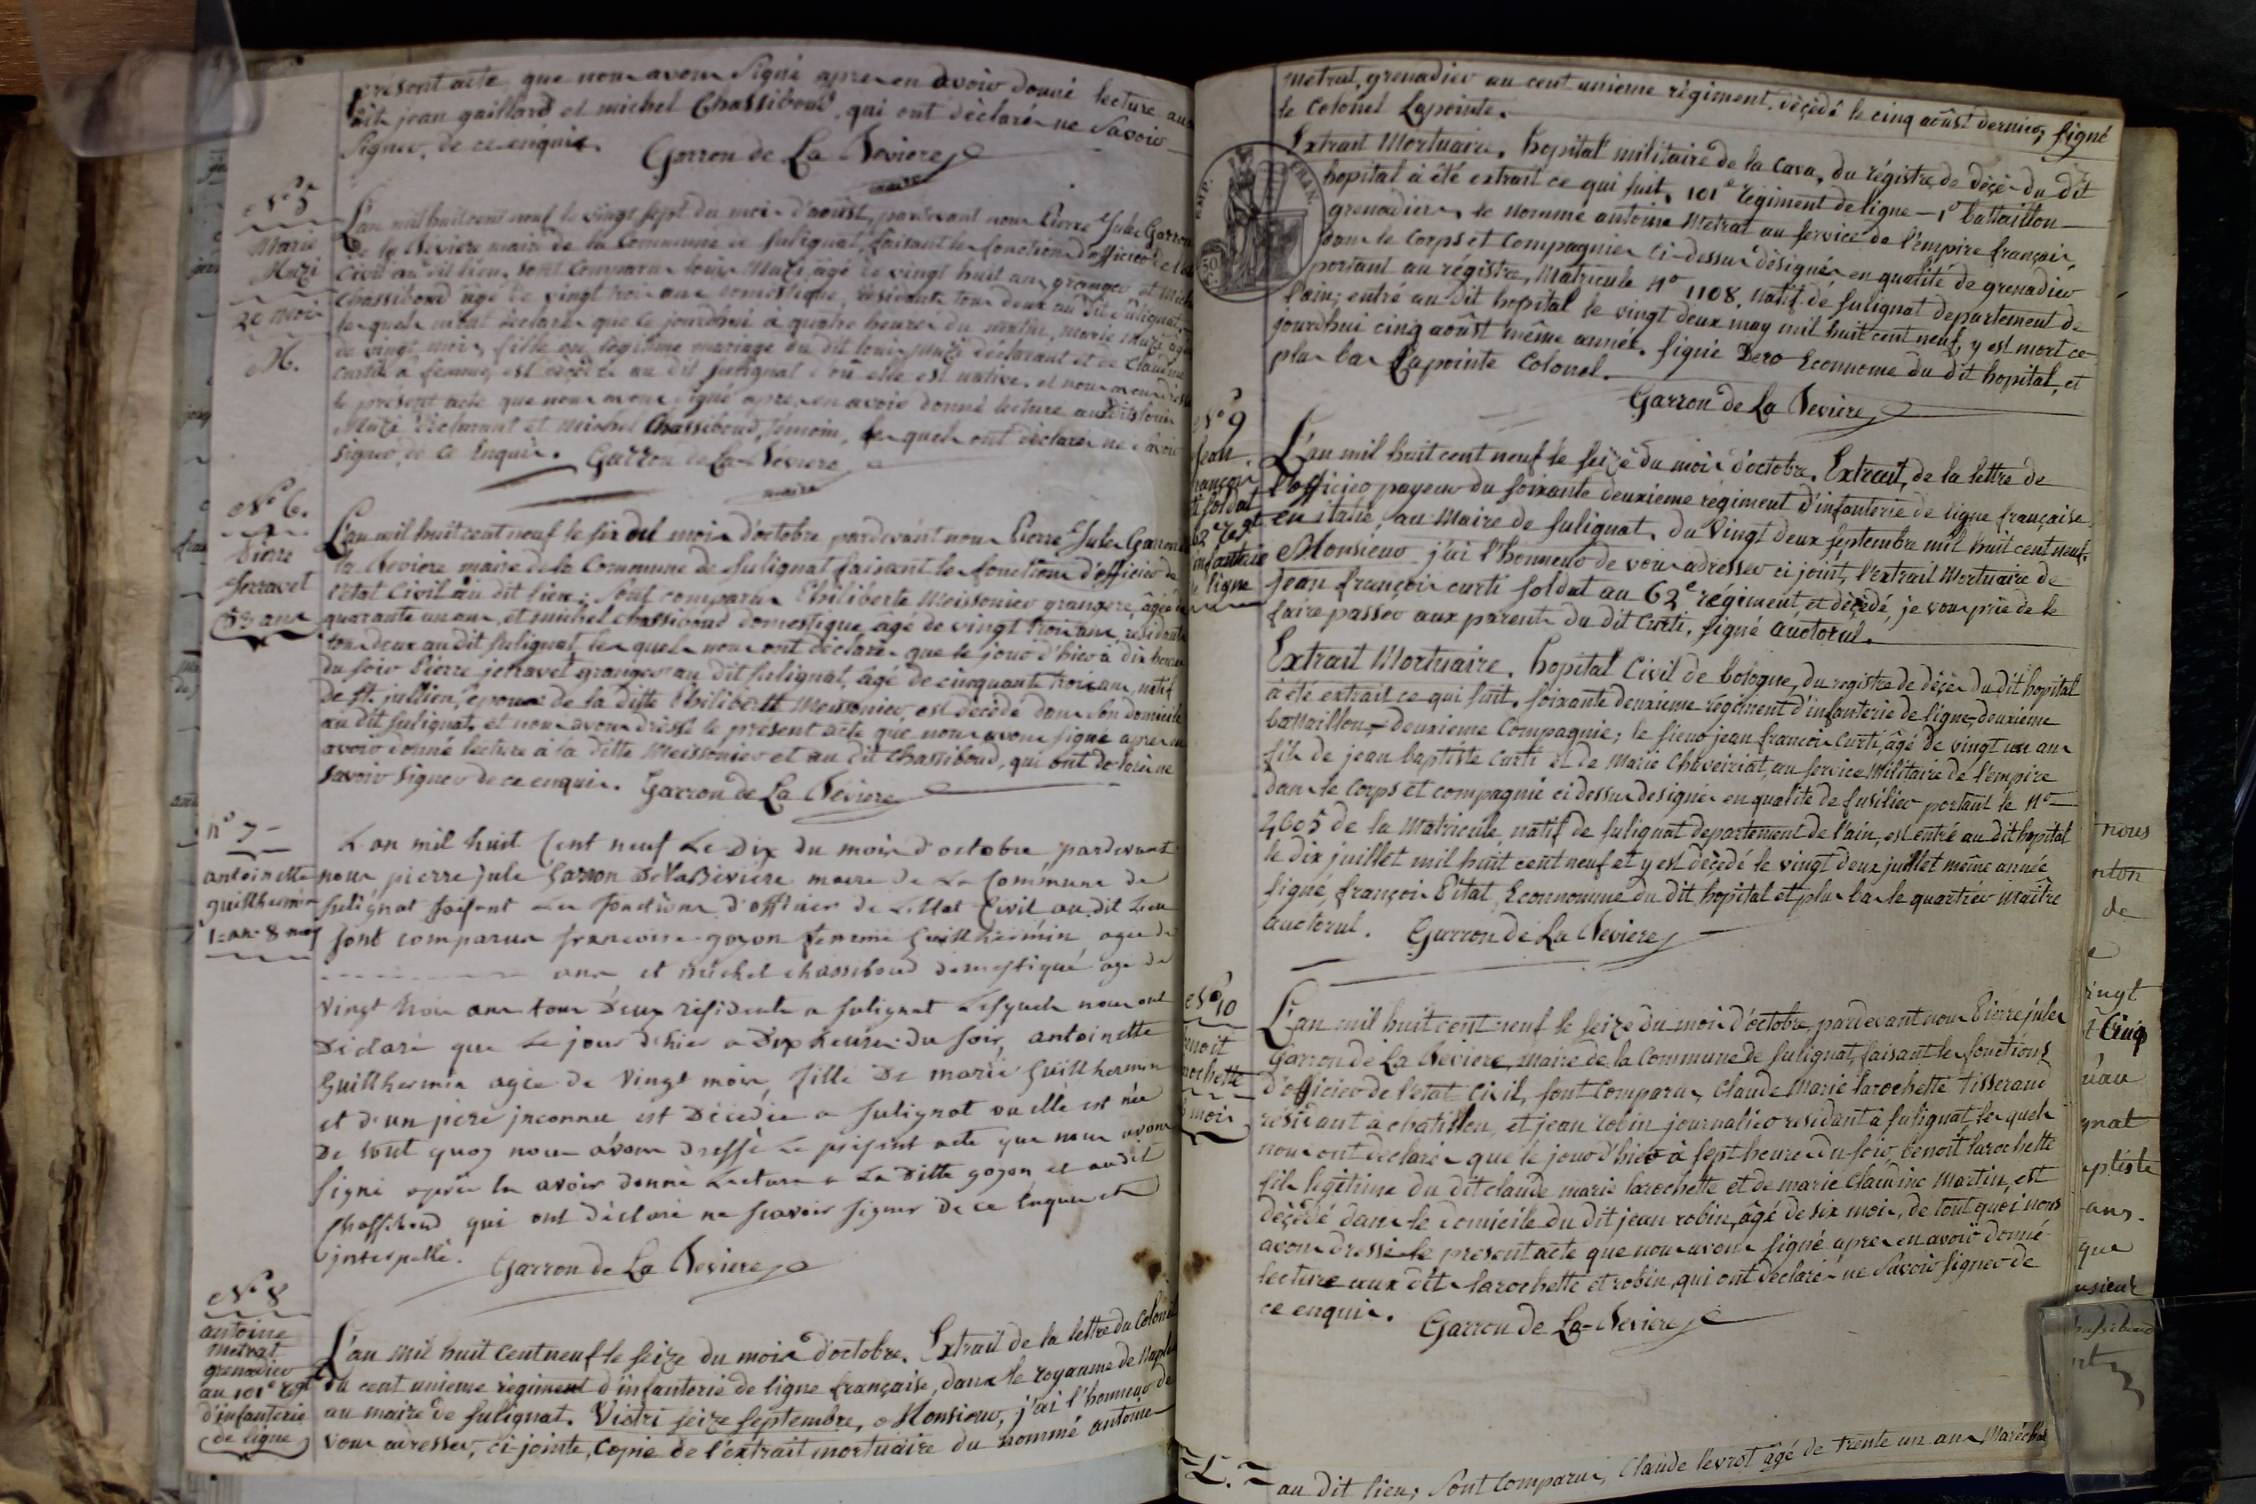 présent acte, que nous avons signé après en avoir donné lecture aux
dits jean gaillard et michel Chassiboud, qui ont déclarés ne savoir
signer, de ce enquis. Garron de La Bevière
maire
N° 5
Marie
Muzi
20 mois
L'an mil huit cent neuf le vingt sept du mois d'aoûst, pardevant nous Pierre Jules Garron
de la Beviere maire de la Commune de Sulignat, faisant les fonctions d'officier de l'état
Civil au dit lieu, sont comparus louis Muzi, âgé de vingt huit ans, granger et Michel
Chassiboud âgé de vingt trois ans domestique, résidants tous deux au dit Sulignat,
lesquels m'ont déclarés que ce jourdhui à quatre heures du matin, marie Muzi âgée
de vingt mois, fille en légitime mariage du dit louis Muzi déclarant et de Claudine
Curtil sa femme, est décédée au dit Sulignat d'où elle est native. et nous avons dressé
le présent acte que nous avons signé après en avoir donné lecture aux dits louis
Muzi déclarant et michel Chassiboud, témoin, lesquels ont déclarés ne savoir
signer, de ce Enquis. Garron de La Beviere
maire
N° 6.
Pierre
Jerravet
53 ans
L'an mil huit cent neuf le six du mois d'octobre pardevant nous Pierre Jules Garron de
la Beviere maire de la Commune de Sulignat faisant les fonctions d'officier de
l'état Civil au dit lieu; sont comparus Philiberte Meissonier grangere, âgée de
quarante un ans, et michel chassiboud domestique âgé de vingt trois ans, résidants
tous deux au dit Sulignat, lesquels nous ont déclarés que le jour d'hier à dix heures
du soir Pierre jerravet granger au dit Sulignat, âgé de cinquante trois ans, natif
de St. jullien, époux de la ditte Philiberte Meissonier, est décédé dans son domicile
au dit Sulignat, et nous avons dressé le présent acte que nous avons signé après en
avoir donné lecture à la ditte Meissonier et au dit Chassiboud, qui ont déclarés ne
savoir signer de ce enquis. Garron de La Beviere
n° 7
antoinette
guillhermin
1 an 8 mois
L an mil huit Cent neuf Le Dix du mois d'octobre pardevant
nous pierre jule Garron De La Bévière maire de La Commune de
Sulignat faisant Les fonctions d'officier de L'etat Civil au dit Lieu
sont comparus francoise goyon femme Guillhermin agee de
ans et michel chassiboud domestique age de
vingt trois ans tous Deux résidents a sulignat Lesquels nous ont
Déclaré que Le jour d'hier a Dix heures du soir, antoinette
Guillhermin agée de vingt mois, fille De marie Guillhermin
et d'un père inconnu est Décédée a sulignat ou elle est née
De tout quoy nous avons dressé Le présent acte que nous avons
signé après En avoir donné Lecture a La Ditte goyon et au dit
Chassiboud qui ont déclaré ne scavoir signer De ce Enquis et
interpellé. Garron de La Beviere
N° 8
antoine
metrat
grenadier
au 101e rgt
d'infanterie
de ligne
L'an mil huit cent neuf le seize du mois d'octobre. Extrait de la lettre du Colonel
du cent unieme régiment d'infanterie de ligne française, dans le royaume de Naples
au maire de Sulignat. Vietri seize septembre, Monsieur, j'ai l'honneur de
vous adresser, ci-jointe, Copie de l'extrait mortuaire du nommé antoine
metrat, grenadier au cent unieme régiment, décédé le cinq aoûst dernier, signé
le Colonel Lapointe.
Extrait Mortuaire. hopital militaire de la Cava, du régistre de décès du dit
hopital à été extrait ce qui suit, 101e régiment de ligne — 1er battaillon
grenadiers, le nommé antoine Metrat au service de l'empire français
dans le Corps et Compagnie ci-dessus désignés en qualité de grenadier
portant au régistre, Matricule N° 1108, natif de Sulignat departement de
l'ain; entré au dit hopital le vingt deux may mil huit cent neuf, y est mort ce
jourdhui cinq aoûst même année. signé Dero Econnome du dit hopital, et
plus bas Lapointe Colonel.
Garron de La Beviere
EMP. FRAN.
N° 9
Jean
françois
soldat
62e regt
infanterie
de ligne
L'an mil huit cent neuf le seize du mois d'octobre. Extrait, de la lettre de
l'officier payeur du soixante deuxieme régiment d'infanterie de ligne française
en italie, au Maire de Sulignat, du vingt deux septembre mil huit cent neuf.
Monsieur j'ai l'honneur de vous adresser ci joint, l'extrait Mortuaire de
Jean françois curti soldat au 62e regiment, et décédé, je vous prie de le
faire passer aux parents du dit Curti. signé auctorul.
Extrait Mortuaire. hopital Civil de bologne, du registre de décès du dit hopital
à été extrait ce qui suit, soixante deuxieme régiment d'infanterie de ligne, deuxieme
battaillon, — deuxieme Compagnie; le sieur jean francois Curti, âgé de vingt un ans
fils de jean baptiste Curti et de Marie Chaveiriat, au service Militaire de l'empire
dans le Corps et compagnie ci dessus designés en qualité de fusilier portant le N°
2605 de la Matricule, natif de sulignat departement de l'ain, est entré au dit hopital
le dix juillet mil huit cent neuf et y est décédé le vingt deux juillet même année
signé, françois Pitat, Econnomme du dit hopital et plus bas le quartier Maître
auctorul. Garron de La Beviere
N° 10
Benoit
larochette
6 mois
L'an mil huit cent neuf le seize du mois d'octobre, pardevant nous Pierre jules
Garron de La Beviere maire de la Commune de Sulignat, faisant les fonctions
d'officier de l'etat Civil, sont Comparus, Claude Marie larochette tisserand
résidant à chatillon, et jean robin journalier residant à Sulignat lesquels
nous ont déclarés que le jour d'hier à sept heures du soir, benoit larochette
fils légitime du dit claude marie larochette et de marie Claudine Martin, est
décédé dans le domicile du dit jean robin, âgé de six mois, de tout quoi nous
avons dressé le present acte que nous avons signé après en avoir donné
lecture aux dits larochette et robin, qui ont déclarés ne savoir signer de
ce enquis. Garron de La Beviere
au dit lieu, sont Comparus, Claude levrot âgé de trente un ans, Maréchal
nous
de
vingt
Cinq
gnat
ans.
que